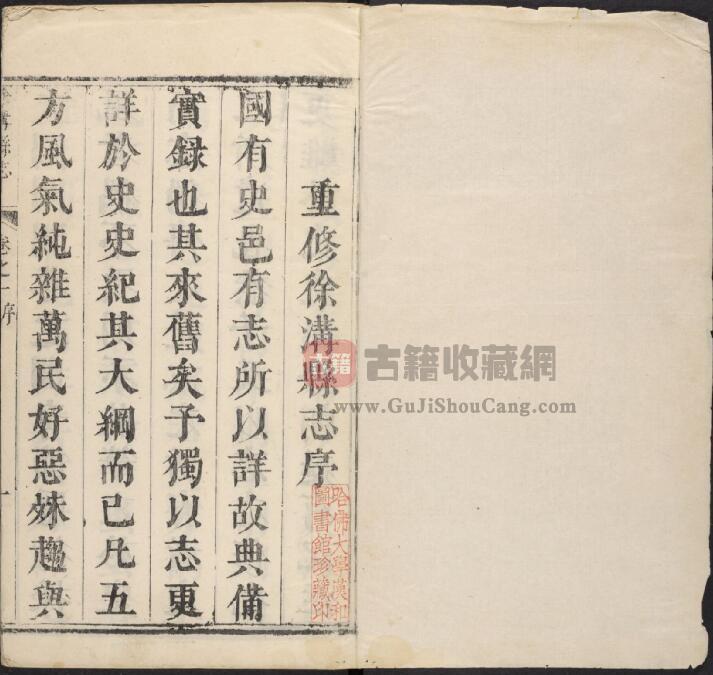 重修徐溝縣志序
國有史邑有志所以詳故典備
實録也其來舊矣予獨以志更
詳於史史紀其大綱而已凡五
方風氣純雜萬民好惡殊趨與
溝縣志 卷之一序 一
哈佛大學漢和
圖書館珍藏印
古籍 古籍收藏網
www.GuJiShouCang.com